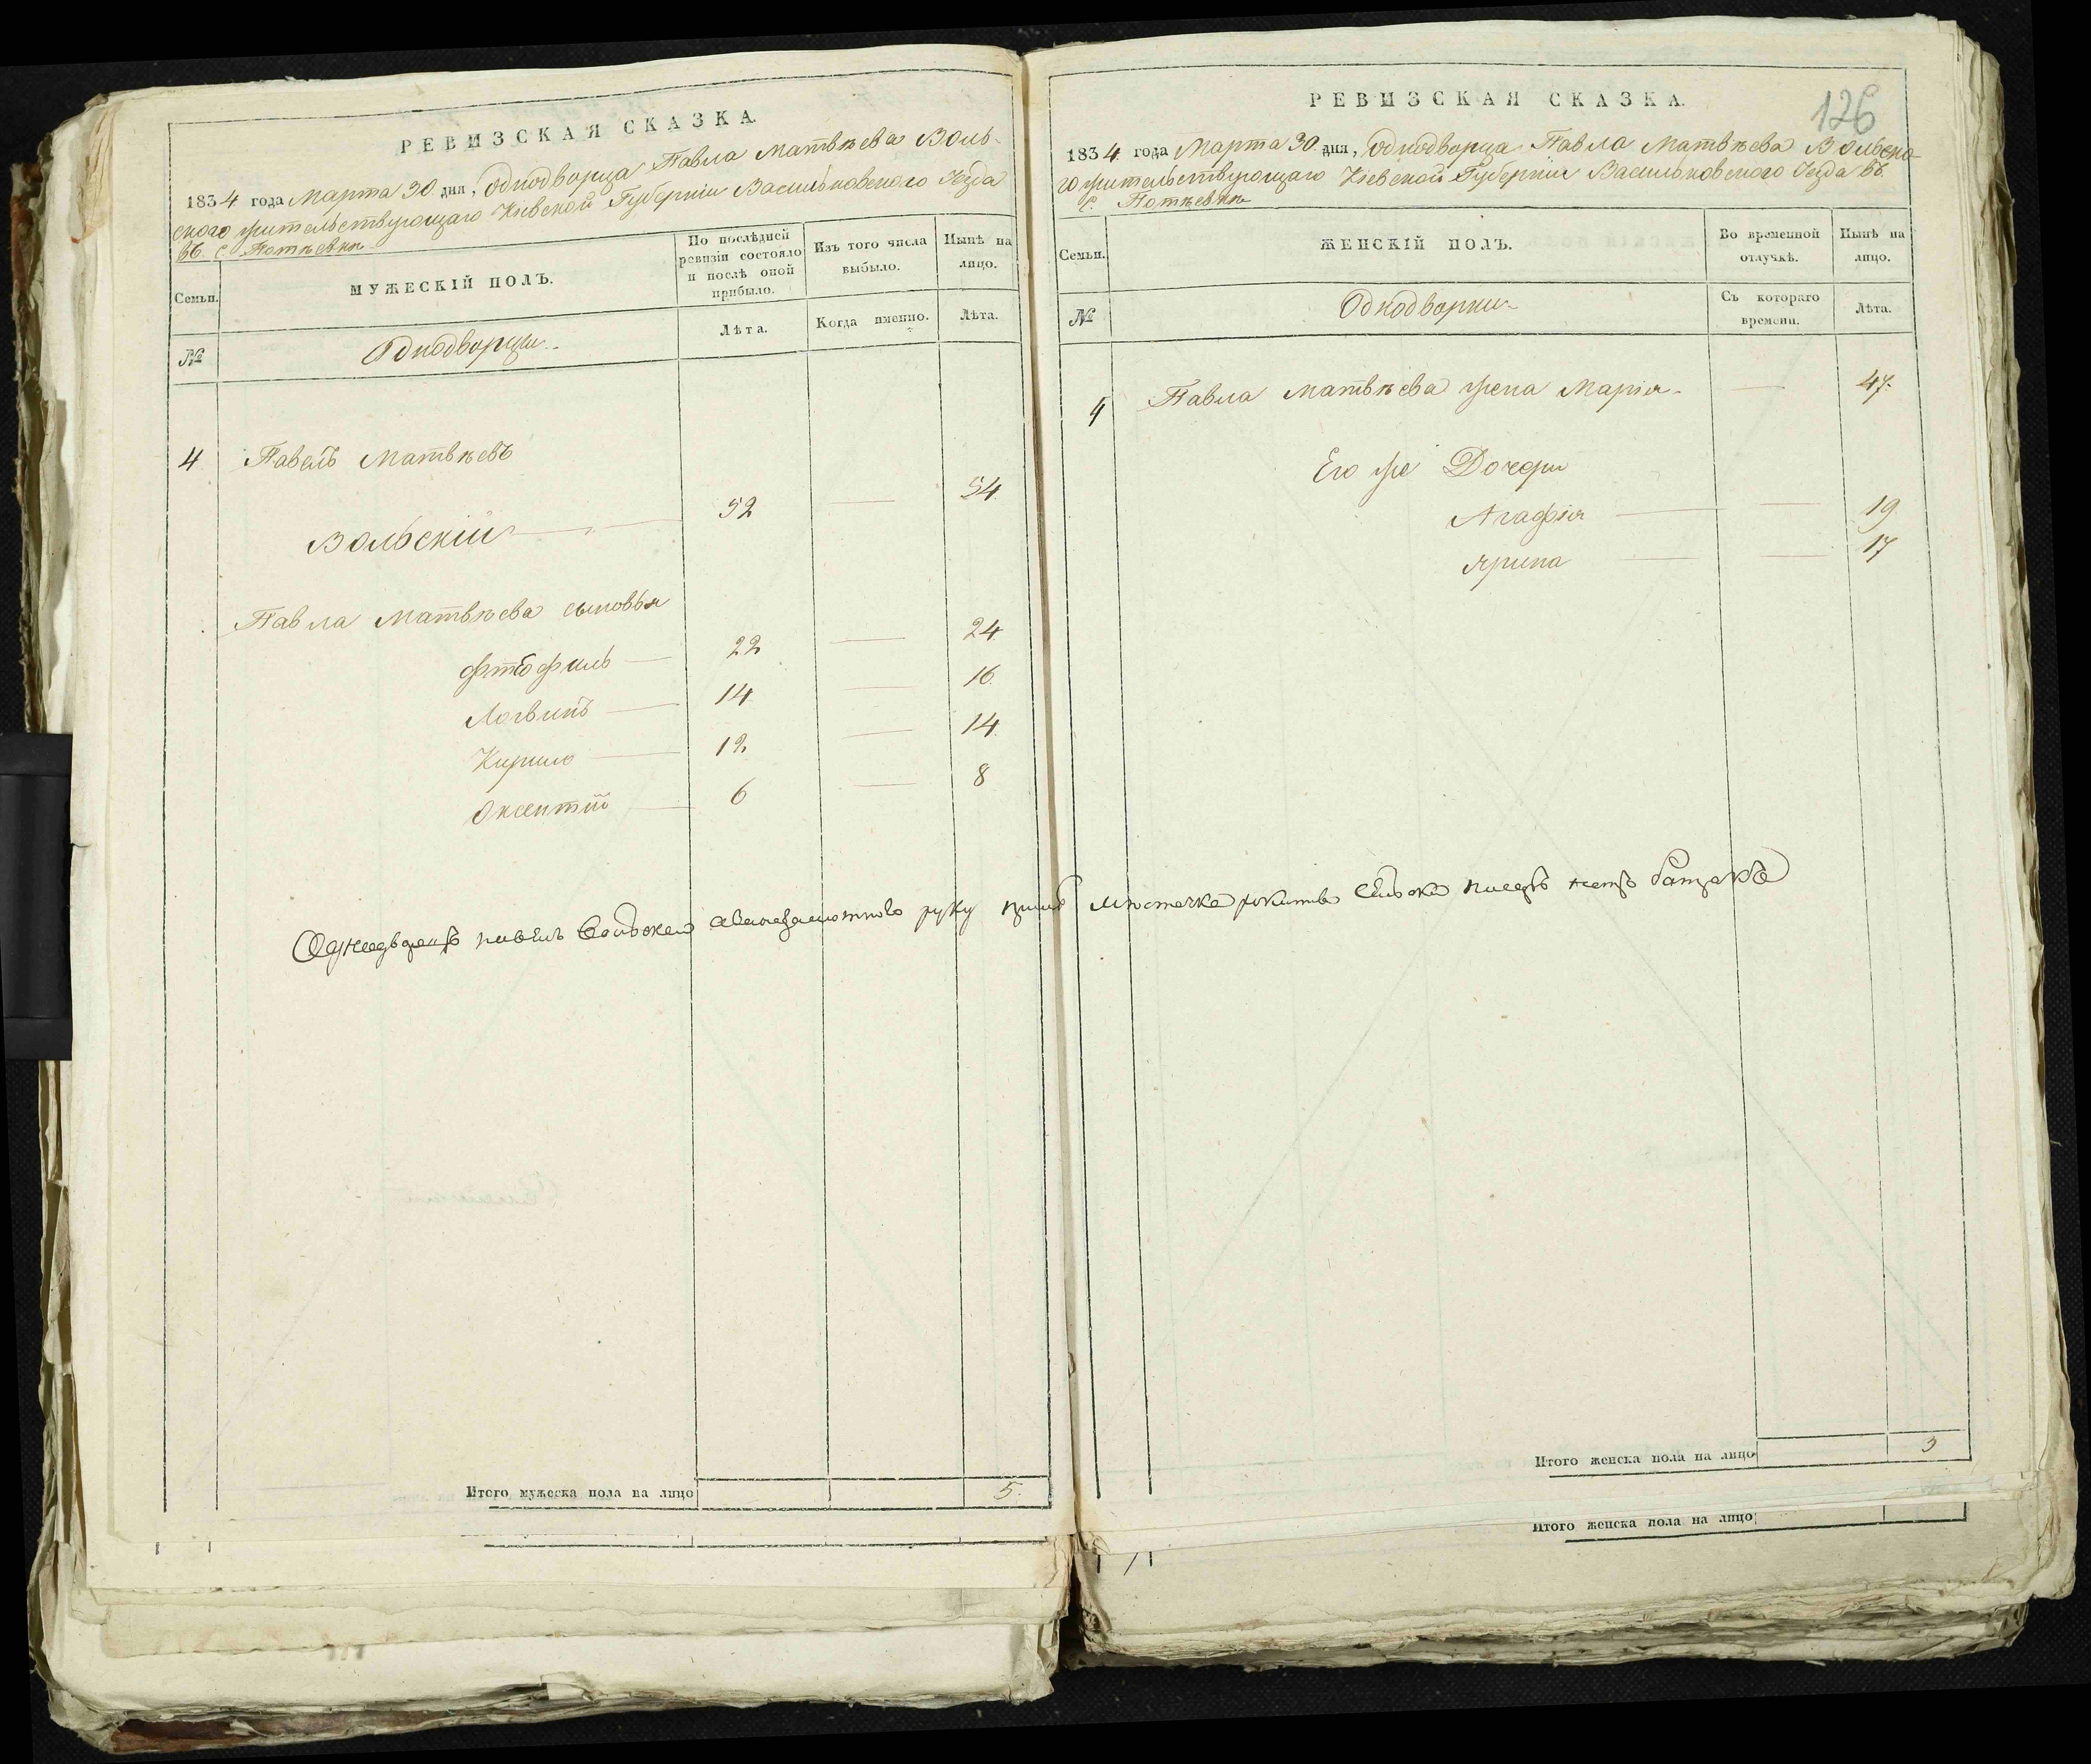 РЕВИЗСКАЯ СКАЗКА.
1834 года Марта 30 дня, Однодворца Павла Матвѣева Воль-
ского жительствующаго Кіевской Губерніи Васильковскаго Уѣзда
въ с. Потѣевкѣ
Семьи.
МУЖЕСКІЙ ПОЛЪ.
По послѣдней
ревизіи состояло
и послѣ оной
прибыло.
Изъ того числа
выбыло.
Нынѣ на
лицо.
№
Однодворцы
Лѣта.
Когда именно.
Лѣта.
4 Павелъ Матвѣевъ
Вольскій 52 54
Павла Матвѣева сыновья
22 24
Логвинъ 14 16
Кирило 12 14
Оксентій 6 8
Однодворецъ
руку
Итого мужеска пола на лицо 5.
126
РЕВИЗСКАЯ СКАЗКА.
1834 года Марта 30 дня, Однодворца Павла Матвѣева Вольска-
го жительствующаго Кіевской Губерніи Васильковскаго Уезда въ
с. Потѣевкѣ
Семьи.
ЖЕНСКІЙ ПОЛЪ.
Во временной
отлучкѣ.
Нынѣ на
лицо.
№
Однодворки
Съ котораго
времени.
Лѣта.
4 Павла Матвѣева жена Марія 47.
Его же Дочери
Агафія 19
Ярина 17
Итого женска пола на лицо 3
Итого женска пола на лицо